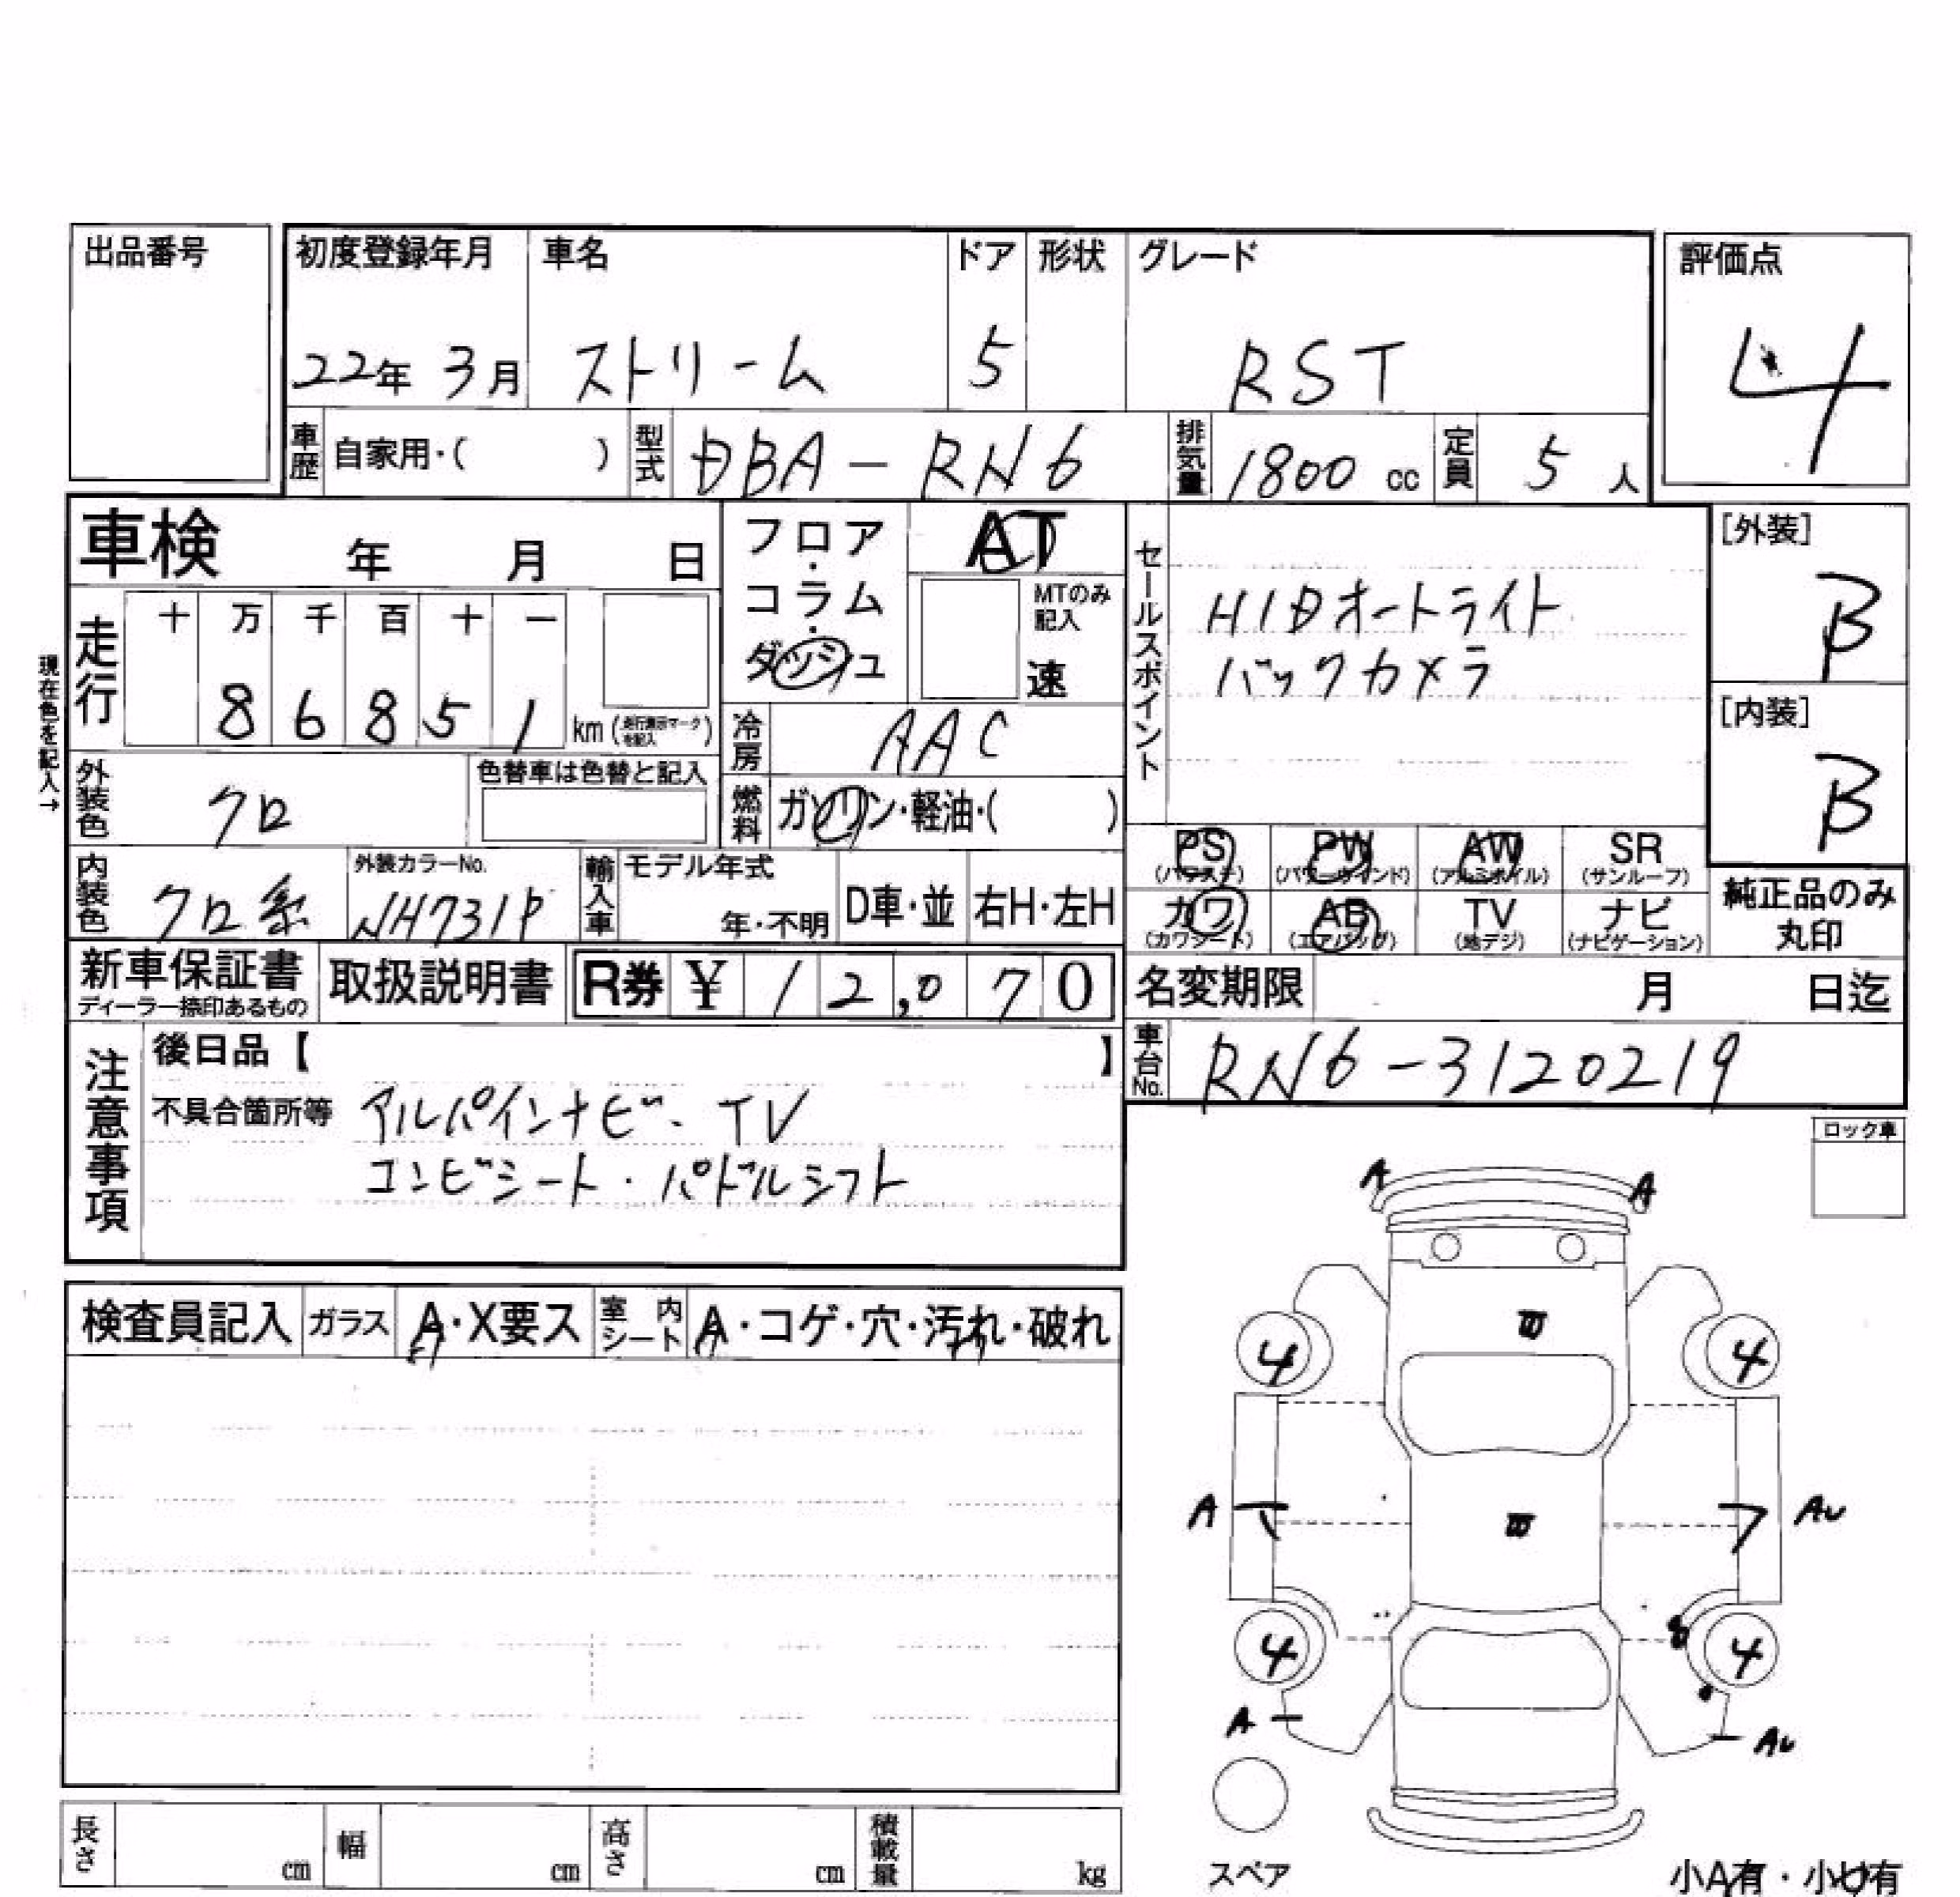 出品番号
初度登録年月 車名 ドア 形状 グレード 評価点
22年 3月 ストリーム 5 RST 4
車歴 自家用・( ) 型式 DBA-RN6 排気量 1800 cc 定員 5 人
車検 年 月 日
フロア・コラム・ダッシュ AT
MTのみ記入 速
セールスポイント
HIDオートライト
バックカメラ
[外装] B
[内装] B
現在色を記入→
走行 十 万 千 百 十 一
8 6 8 5 1 km (走行表示マークを記入)
冷房 AAC
外装色 クロ 色替車は色替と記入
燃料 ガソリン・軽油・( )
内装色 クロ系 外装カラーNo. NH731P
輸入車 モデル年式 年・不明 D車・並 右H・左H
PS (パワステ) PW (パワーウインド) AW (アルミホイル) SR (サンルーフ)
カワ (カワシート) AB (エアバッグ) TV (地デジ) ナビ (ナビゲーション)
純正品のみ丸印
新車保証書 ディーラー捺印あるもの 取扱説明書 R券 ¥ 12,070
名変期限 月 日迄
車台No. RN6-3120219
注意事項
後日品【 】
不具合箇所等 アルパインナビ・TV
コンビシート・パドルシフト
ロック車
検査員記入 ガラス A・X要ス 室内シート A・コゲ・穴・汚れ・破れ
A A
4 4
A Au
4 4
A Au
スペア
長さ cm 幅 cm 高さ cm 積載量 kg
小A有・小U有